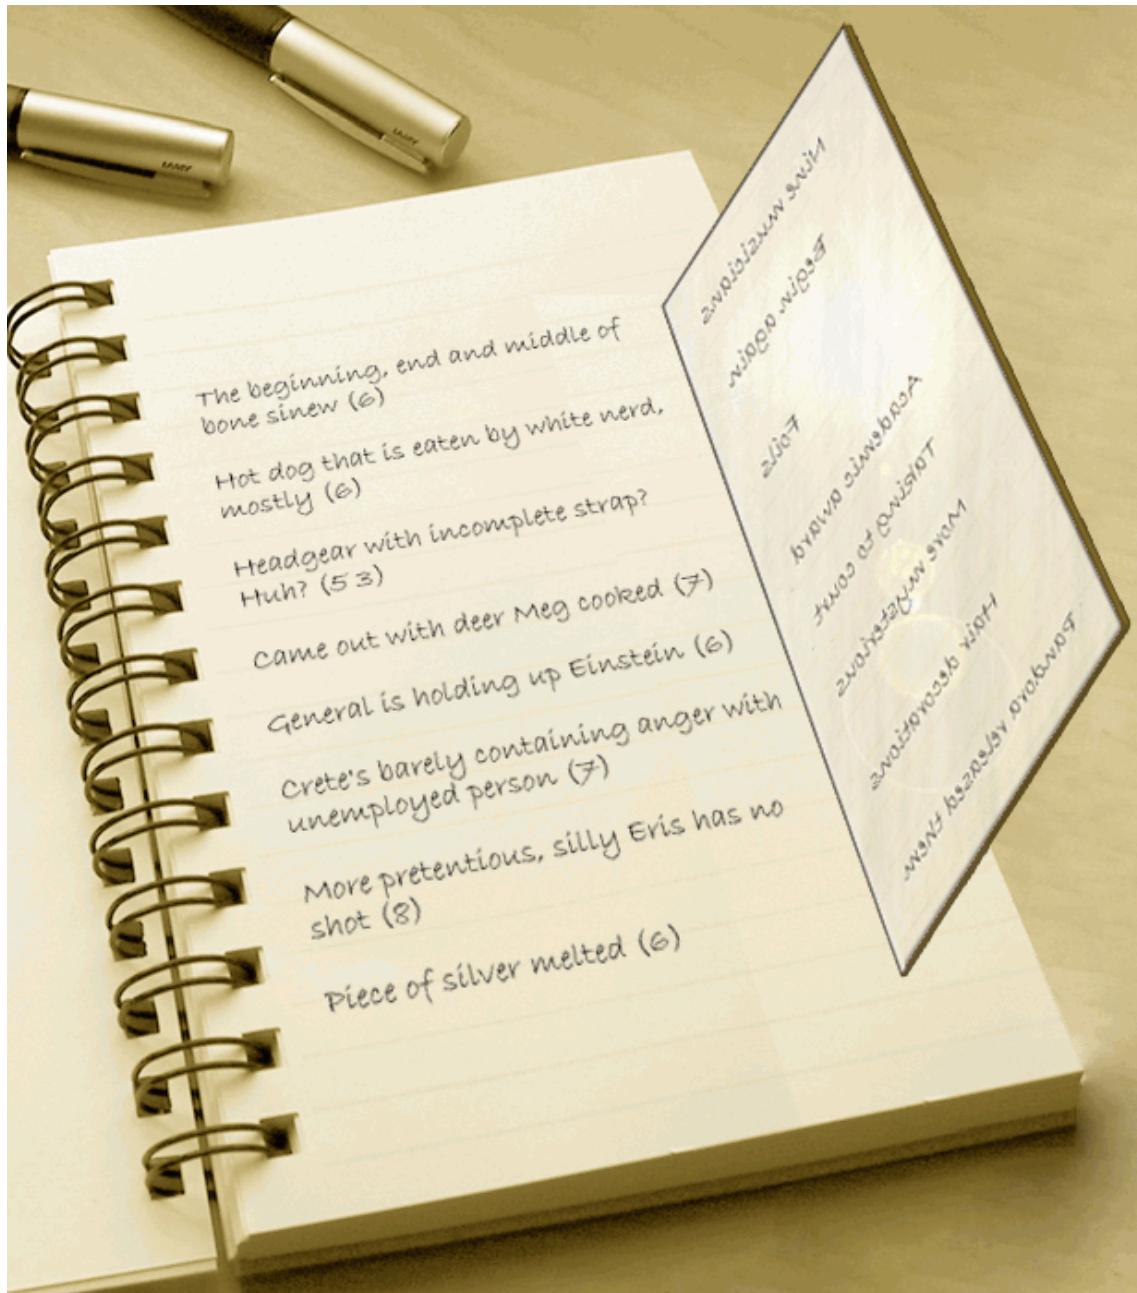 LAMY
LAMY
The beginning, end and middle of
bone sinew (6)
Hot dog that is eaten by white nerd,
mostly (6)
Headgear with incomplete strap?
Huh? (5 3)
Came out with deer Meg cooked (7)
General is holding up Einstein (6)
Crete's barely containing anger with
unemployed person (7)
More pretentious, silly Eris has no
shot (8)
Piece of silver melted (6)
Nine musicians
Begin again
Foils
Academic award
Taking to court
More mysterious
Hair decorations
Pandora released them